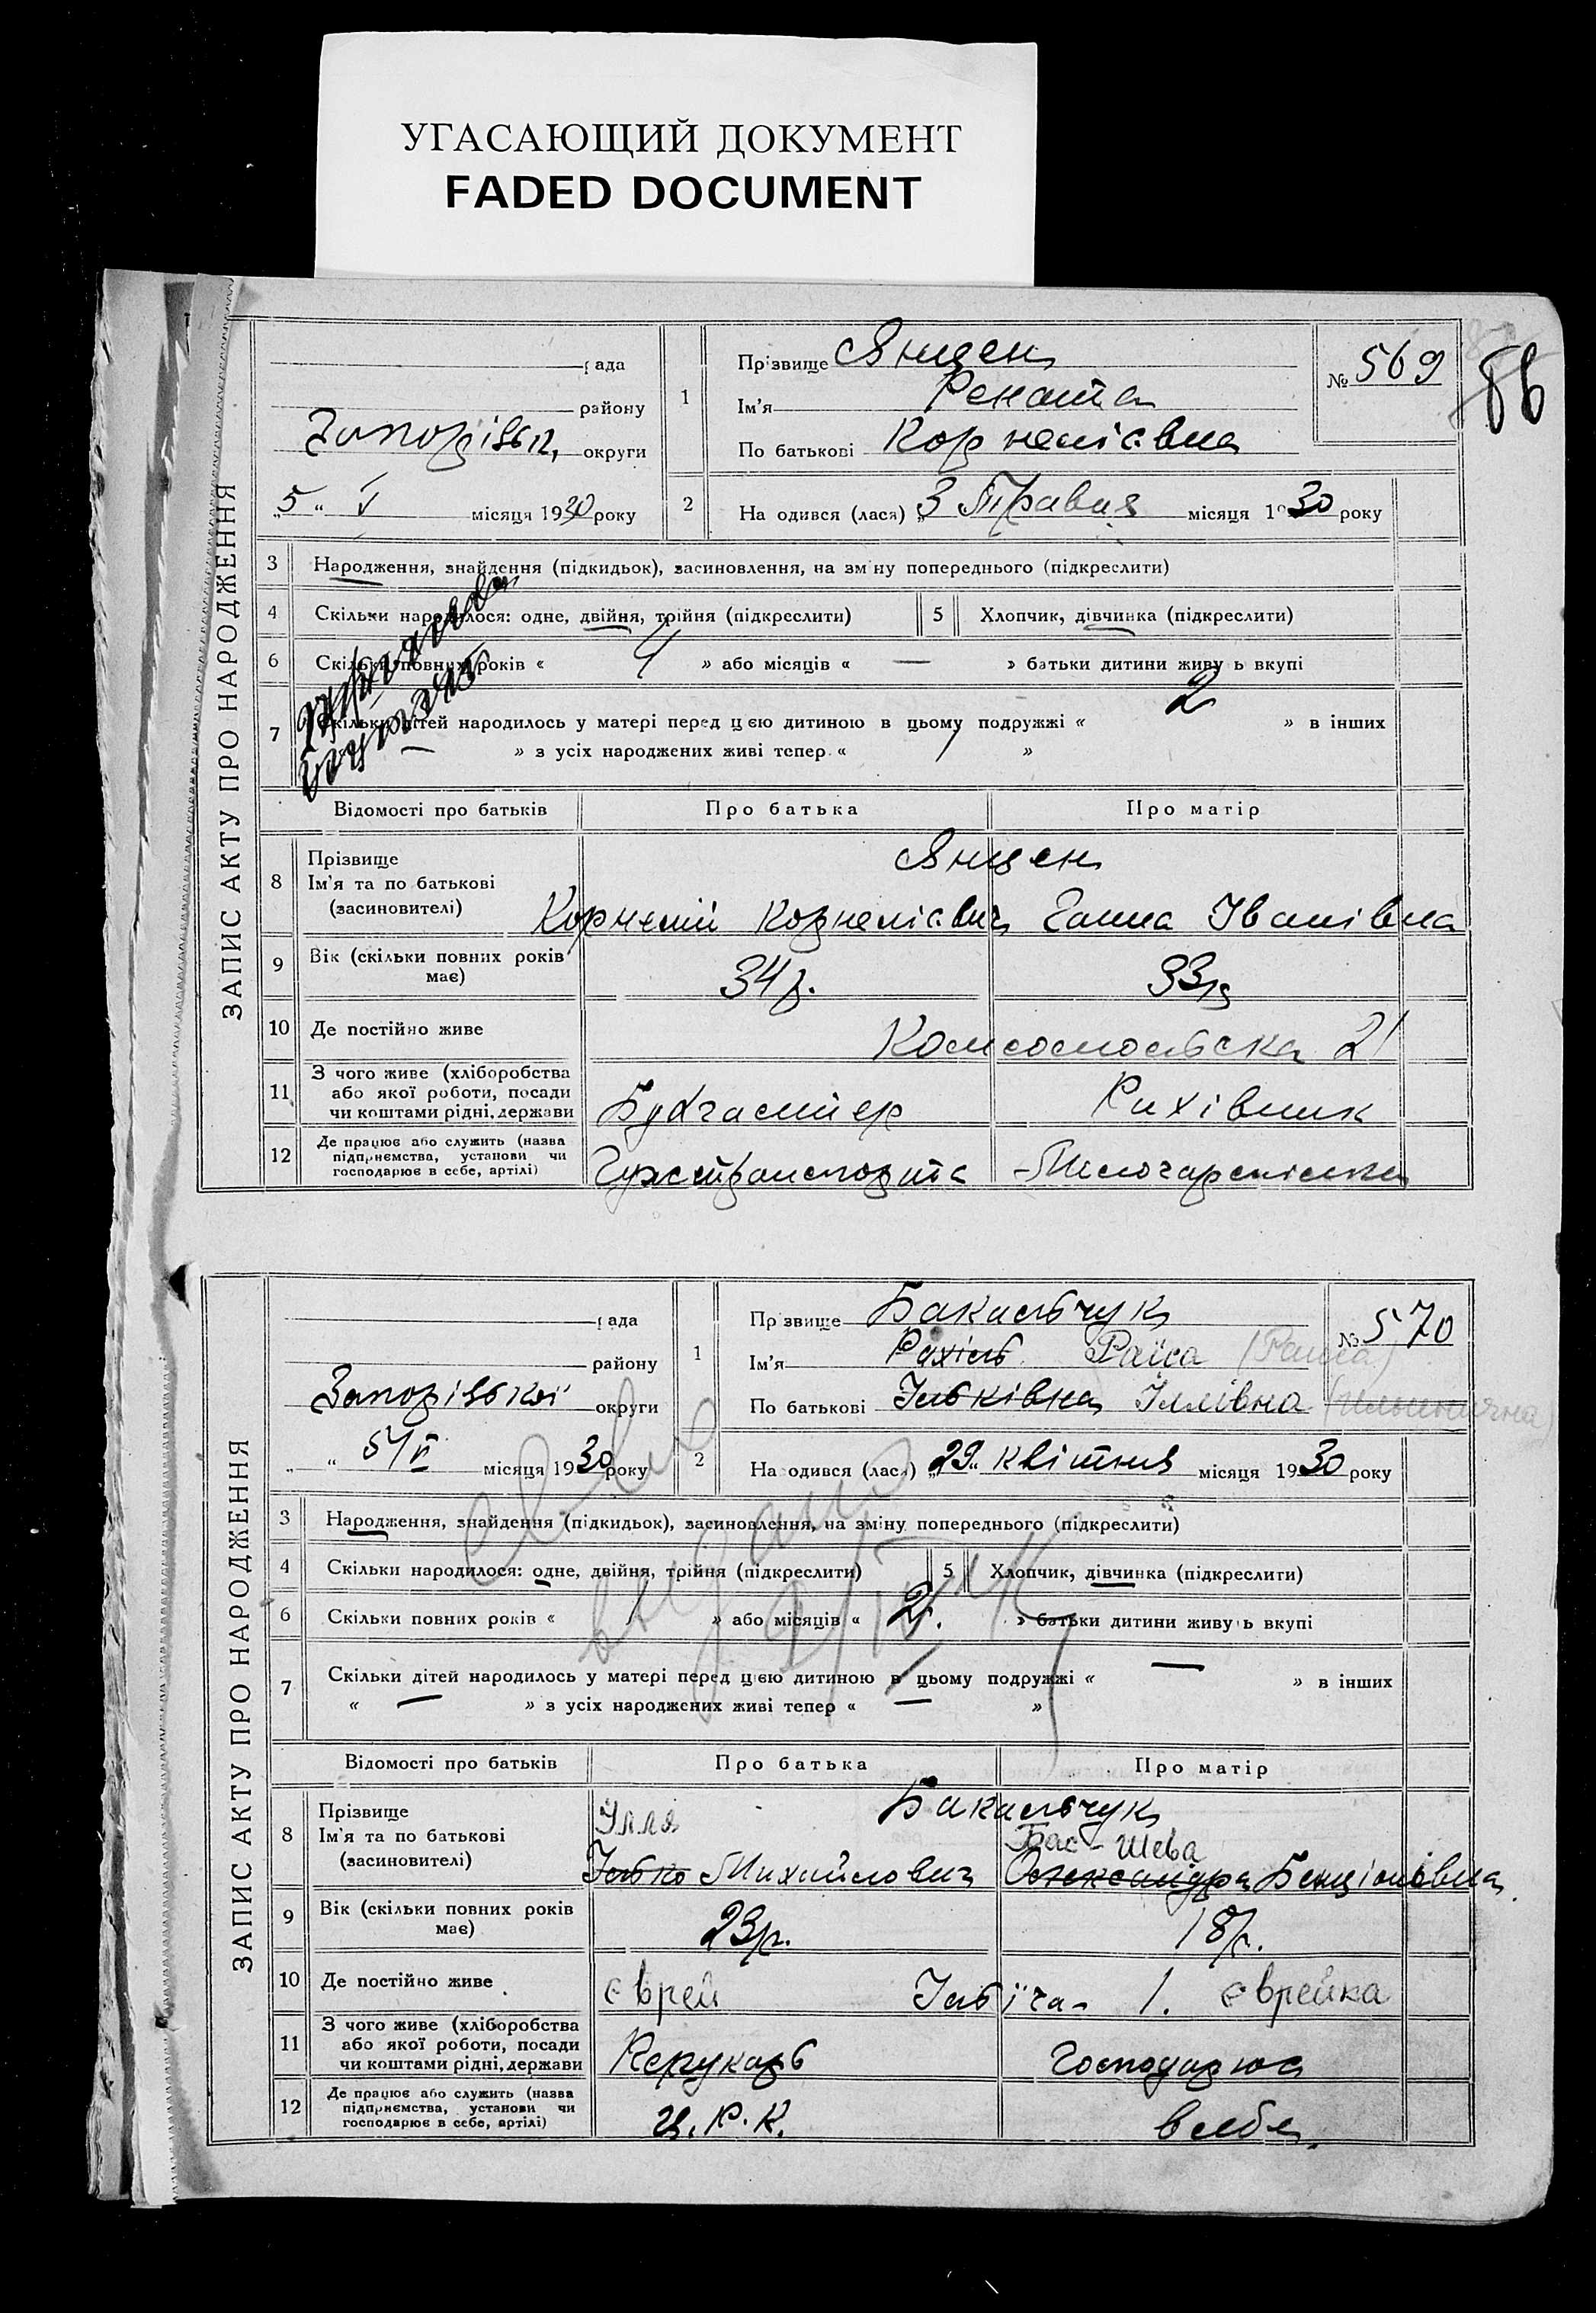 УГАСАЮЩИЙ ДОКУМЕНТ
FADED DOCUMENT
86
ЗАПИС АКТУ ПРО НАРОДЖЕННЯ
рада
району
округи
„5“ V місяця 1930 року
1
Прізвище Янцен
Ім'я Рената
По батькові Корнелієвна
№ 569
2 Народився (лася) „3 Травня місяця 1930 року
3 Народження, знайдення (підкидьок), засиновлення, на зміну попереднього (підкреслити)
4 Скільки народилося: одне, двійня, трійня (підкреслити)
5 Хлопчик, дівчинка (підкреслити)
6 Скільки повних років « 4 » або місяців « — » батьки дитини живуть вкупі
7 Скільки дітей народилось у матері перед цією дитиною в цьому подружжі « 2 » в інших
— » з усіх народжених живі тепер « 1 »
Відомості про батьків Про батька Про матір
8 Прізвище
Ім'я та по батькові
(засиновителі)
Янцен
Корнелій Корнелієвич Ганна Іванівна
9 Вік (скільки повних років має) 34 р. 33 р
10 Де постійно живе Комсомольська 21
11 З чого живе (хліборобства
або якої роботи, посади
чи коштами рідні, держави
Бухгалтер
12 Де працює або служить (назва
підприємства, установи чи
господарює в себе, артілі)
Гужтранспорта
ЗАПИС АКТУ ПРО НАРОДЖЕННЯ
рада
району
Запорізької округи
„ “ 5/V місяця 1930 року
1
Прізвище Бакальчук
Ім'я Рахіль Раїса
По батькові Ільківна Іллівна
№ 570
2 Народився (лася) „29“ квітня місяця 1930 року
3 Народження, знайдення (підкидьок), засиновлення, на зміну попереднього (підкреслити)
4 Скільки народилося: одне, двійня, трійня (підкреслити)
5 Хлопчик, дівчинка (підкреслити)
6 Скільки повних років « 1 » або місяців « 2 » батьки дитини живуть вкупі
7 Скільки дітей народилось у матері перед цією дитиною в цьому подружжі « — » в інших
« — » з усіх народжених живі тепер « — »
Відомості про батьків Про батька Про матір
8 Прізвище
Ім'я та по батькові
(засиновителі)
Бакальчук
Ілля Бас-Шева
Ілько Михайлович Олександра Бенціонівна
9 Вік (скільки повних років має) 23 р. 18 р.
10 Де постійно живе єврей Ілліча 1. єврейка
11 З чого живе (хліборобства
або якої роботи, посади
чи коштами рідні, держави
Перукарь Господарює
12 Де працює або служить (назва
підприємства, установи чи
господарює в себе, артілі)
в себе